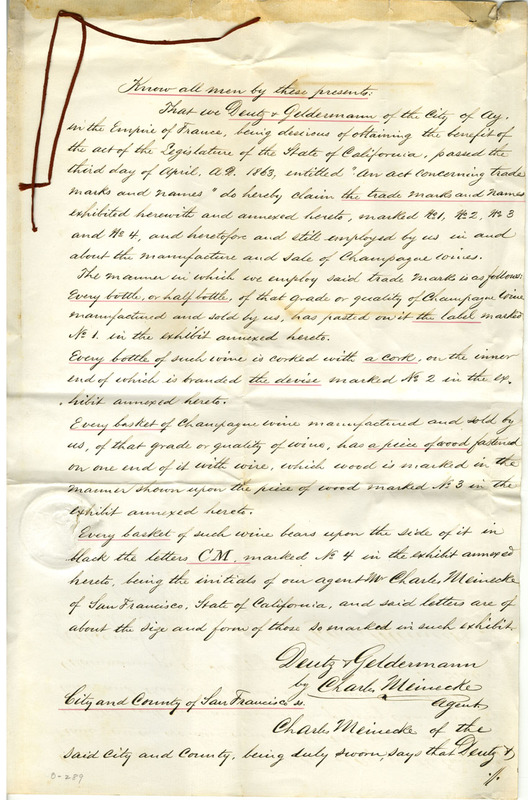 Know all men by these presents:
That we Deutz & Geldermann of the City of Ay,
in the Empire of France, being desirous of obtaining the benefit of
the act of the Legislature of the State of California, passed the
third day of April, A.D. 1863, entitled "An act concerning trade
marks and names" do hereby claim the trade marks and names
exhibited herewith and annexed hereto, marked No 1, No 2, No 3
and No 4, and heretofore and still employed by us in and
about the manufacture and sale of Champagne wines.
The manner in which we employ said trade marks is as follows:
Every bottle, or half bottle, of that grade or quality of Champagne Wine
manufactured and sold by us, has pasted on it the label marked
No 1. in the exhibit annexed hereto.
Every bottle of such wine is corked with a cork, on the inner
end of which is branded the devise marked No 2 in the ex-
hibit annexed hereto.
Every basket of Champagne wine manufactured and sold by
us, of that grade or quality of wine, has a piece of wood fastened
on one end of it with wire, which wood is marked in the
manner shown upon the piece of wood marked No 3 in the
exhibit annexed hereto.
Every basket of such wine bears upon the side of it in
black the letters CM, marked No 4 in the exhibit annexed
hereto, being the initials of our agent Mr Charles Meinecke
of San Francisco, State of California, and said letters are of
about the size and form of those so marked in such exhibit
Deutz & Geldermann
by Charles Meinecke
City and County of San Francisco ss.
Agent
Charles Meinecke of the
said City and County, being duly sworn, says that Deutz &
D-289